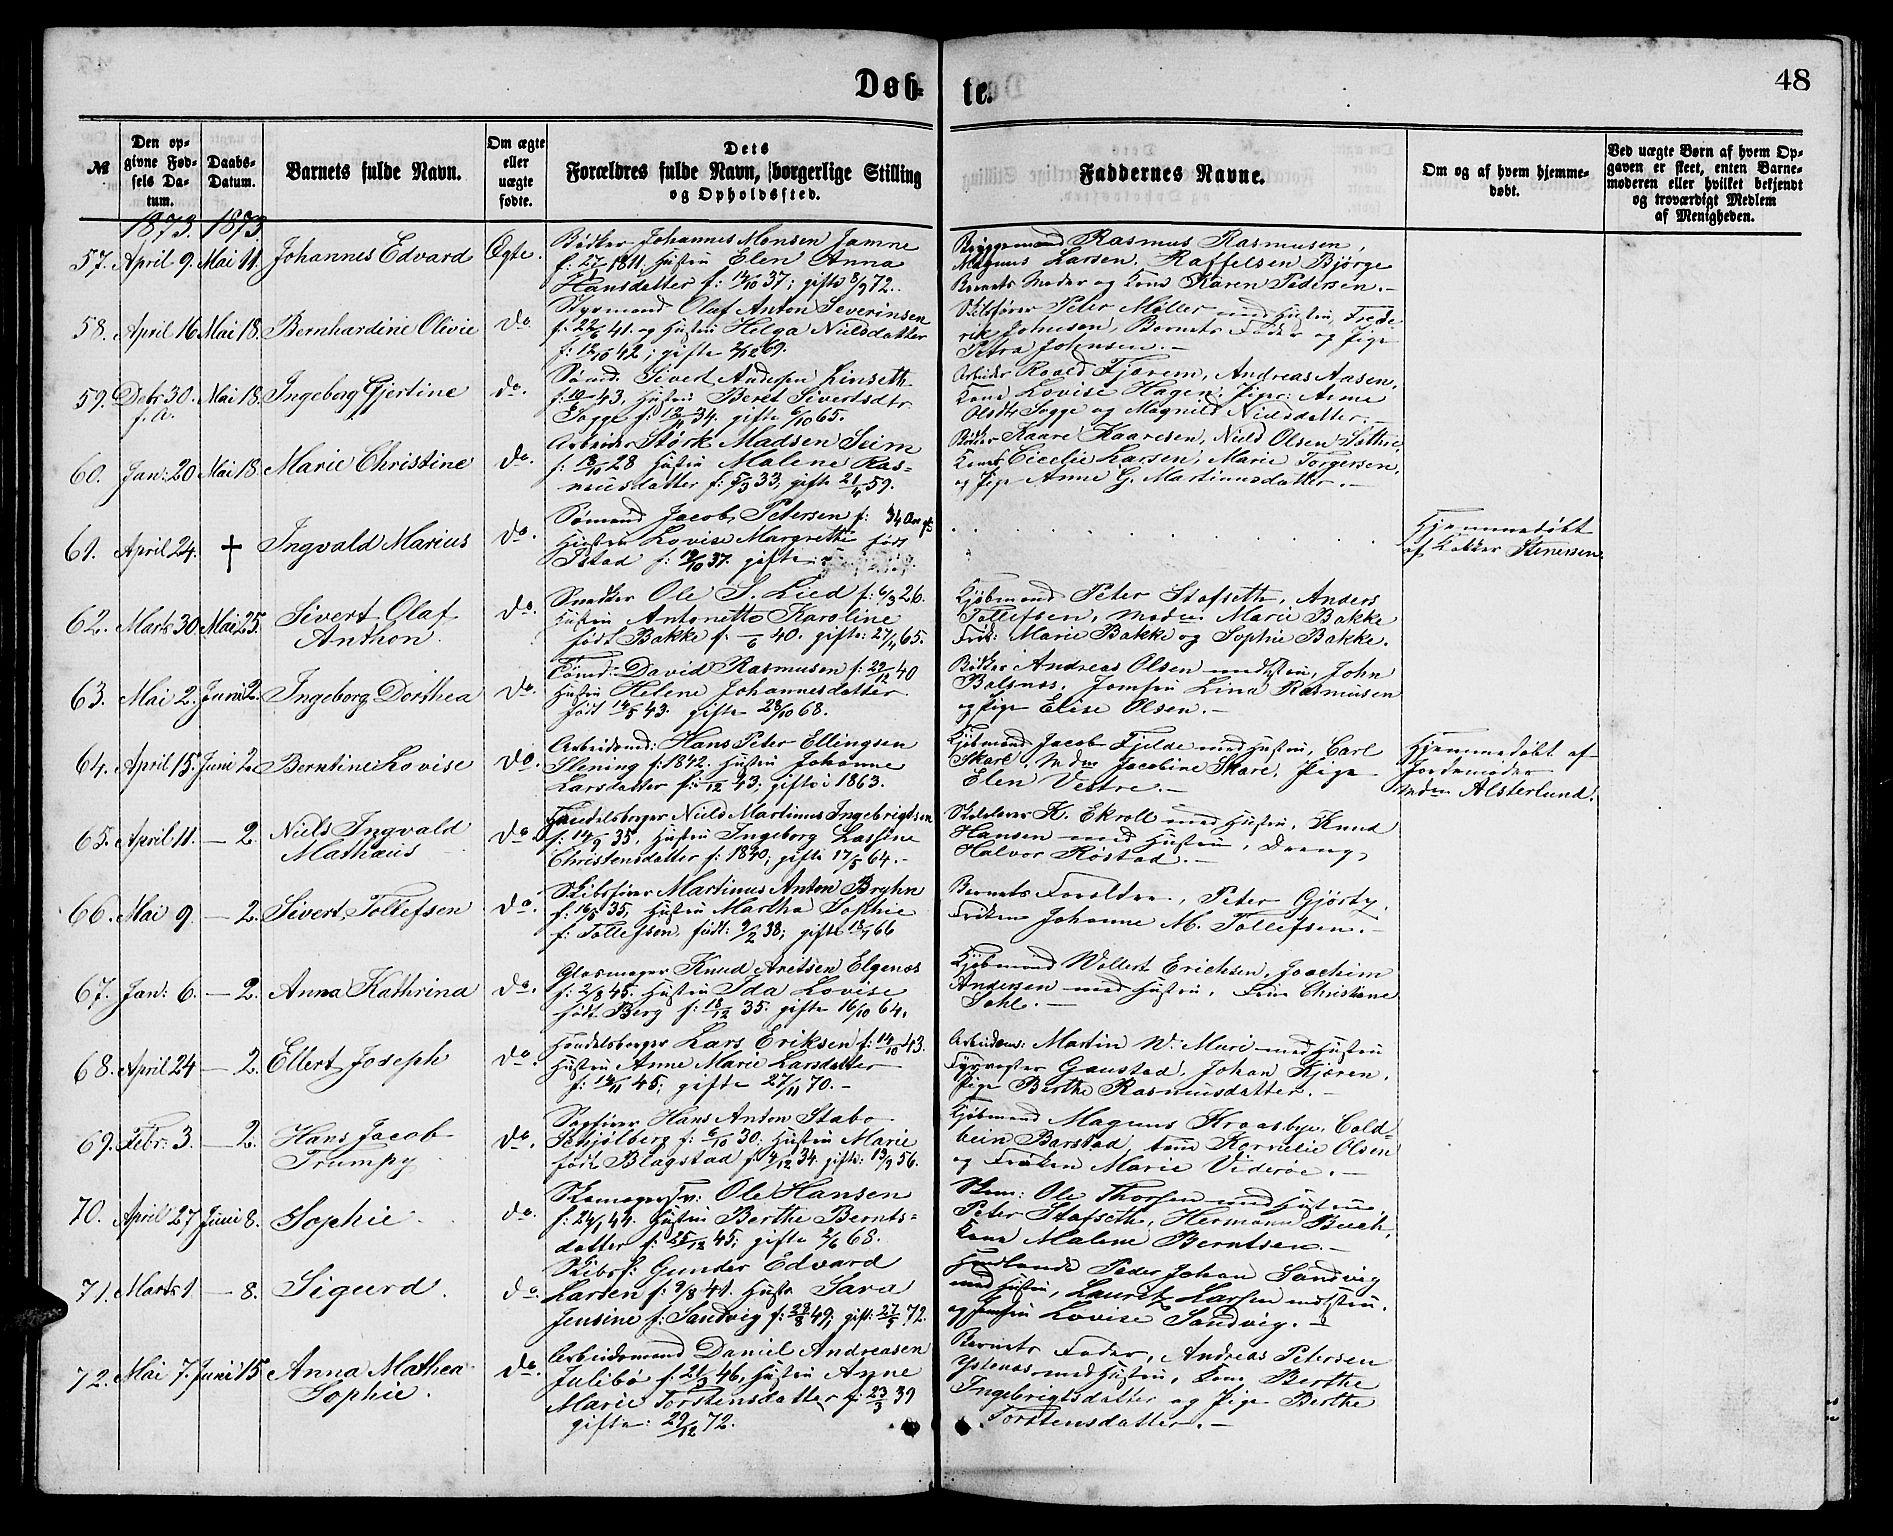 Døb- te.
48
№
Den op-
givne Fød-
sels Da-
tum.
Daabs-
Datum.
Barnets fulde Navn.
Om ægte
eller
uægte
fødte.
Dets
Forældres fulde Navn, borgerlige Stilling
og Opholdssted.
Faddernes Navne.
Om og af hvem hjemme-
døbt.
Ved uægte Børn af hvem Op-
gaven er skeet, enten Barne-
moderen eller hvilket bekjendt
og troværdigt Medlem
af Menigheden.
1873. 1873
57. April 9. Mai 11. Johannes Edvard Ægte.
Bødker Johannes Monsen Jamne
f: 27/ 1811, Hustru Elen Anna
Hansdatter f: 14/10 37; gifte 8/9 72.
Rasmus Rasmusen,
Magnus Larsen, Raffelsen Bjørge
Barnets Moder og Kone Karen Pedersen.-
58. April 16 Mai 18. Bernhardine Olivie do.
Styrmand Olaf Anton Severinsen
f: 22/6 41. og Hustru Helga Nielsdatter
f: 12/10 42; gifte 2/12 69.
Skibsfører Peter Møller med Hustru, Frede
rik Johnsen, Barnets Fader og Pige
Petra Johnsen.-
59. Debr 30. Mai 18. Ingeborg Gjertine do.
f. A.
Sømd. Sivert Andersen Linseth
f: 43, Hustru Beret Sivertsdtr
Sogge f: 12/11 34. gifte 6/10 65.
Arbeider Roald Fjørem, Andreas Aasen,
Kone Lovise Hagen, Piger: Anne
Olsdtr Sogge og Magnild Nielsdatter.
60. Jan: 20 Mai 18. Marie Christine do.
Arbeider Størk Madsen Seim
f: 13/10 28 Hustru Malene Ras-
musdatter f: 5/3 33, gifte 21/4 59.
Bødker Kaare Kaaresen, Niels Olsen Sæthre,
Koner Cicelie Larsen, Marie Torgersen,
og Pige Anne G. Martinusdatter.-
61. April 24. † Ingvald Marius do.
Sømand Jacob Petersen f: 34 Aar gl:
Hustru Lovise Margrethe født
Istad f: 19/10 37. gifte
Hjemmedøbt
af Kokker Stenersen.
62. Marts 30 Mai 25. Sivert Olaf do.
Anthon.
Snedker Ole S. Lied f: 6/3 26.
Hustru Antonette Karoline
født Bakke f: -/6 40. gifte: 27/4 65.
Kjøbmand Peter Stafseth, Anders
Tollefsen, Madm Marie Bakke
Frk: Marie Bakke og Sophie Bakke.
63. Mai 2. Juni 2. Ingeborg Dorthea do.
Sømd: David Rasmusen f: 22/12 40
Hustru Helene Johannesdatter
født 14/5 43. gifte 28/10 68.
Bødker Andreas Olsen med Hustru, John
Balsnæs, Jomfru Lina Rasmusen
og Pige Elise Olsen.-
64. April 15. Juni 2. Berntine Lovise do.
Arbeidsmd: Hans Peter Ellingsen
Slening f: 1842. Hustru Johanne
Larsdatter f: -/12 43; gifte i 1863.
Kjøbmand Jacob Fjelde med Hustru, Carl
Skare, Mdm Jacobine Skare, Pige
Elen Vestre.-
Hjemmedøbt af
Jordemoder
Mdm Alsterlund.
65. April 11. - 2. Niels Ingvald do.
Mathæus
Handelsborger Niels Martinus Ingebrigtsen
f: 14/9 35, Hustru Ingeborg Lassine
Christensdatter f: 1840, gifte 17/5 64.-
Skolelærer K. Ekroll med Hustru, Knud
Hansen med Hustru, Dreng
Halvor Røstad.-
66. Mai 9. - 2. Sivert Tollefsen do.
Skibsfører Martinus Anton Bryhn
f: 16/5 35, Hustru Martha Sophie
f: Tollefsen født: 9/2 38; gifte 18/7 66
Barnets Forældre, Peter Gjørtz,
Frøken Johanne M. Tollefsen.-
67. Jan: 6. - 2. Anna Kathrina do.
Glasmager Knud Aretsen Elgenæs
f: 2/8 45. Hustru Ida Lovise
født Berg f: 18/12 35. gifte 16/10 64.
Kjøbmand Wollert Erichsen, Joachim
Andersen med Hustru, Frue Christiane
Dahl.-
68. April 24 - 2. Ellert Joseph do.
Handelsborger Lars Eriksen f: 14/10 43.
Hustru Anne Marie Larsdatter
f: 14/11 45; gifte 27/11 70.-
Arbeidsm: Martin W. Mari med Hustru
Fyrvogter Gaustad, Johan Kjøren,
Pige Berthe Rasmusdatter.-
69. Febr: 3. - 2. Hans Jacob do.
Trumpy
Hans Anton Stabo
Schjølberg f: 6/10 30; Hustru Marie
født Blagstad f: 4/12 34. gifte: 13/9 56.
Kjøbmand Magnus Kraasbye, Cold-
bein Barstad, Kornelie Olsen
og Frøken Marie Viderøe.-
70. April 27 Juni 8. Sophie do.
Skomagersv: Ole Hansen
f: 24/1 44. Hustru Berthe Bernts-
datter f: 25/12 45; gifte 2/6 68.
Skom: Ole Thorsen med Hustru,
Peter Stafseth, Hermann Buch,
Kone Malene Berntsen.-
71. Marts 1 - 8. Sigurd. do.
Skibsf: Gunder Edvard
Larsen f: 9/8 41. Hustr Sara
Jensine f: Sandvig f: 28/8 49; gift: 27/5 72.
Handlende Peder Johan Sandvig
med Hustru, Lauritz Larsen med Hstru,
og Jomfru Lovise Sandvig.-
72. Mai 7. Juni 15 Anna Mathea do.
Sophie.
Arbeidsmand Daniel Andreasen
Julibø f: 21/3 46, Hustru Anne
Marie Torstensdatter f: 23/3 39
gifte: 29/12 72.
Barnets Fader, Andreas Petersen
Ystenæs med Hustru, Kone Berthe
Ingebrigtsdatter og Pige Berthe
Torstensdatter.-